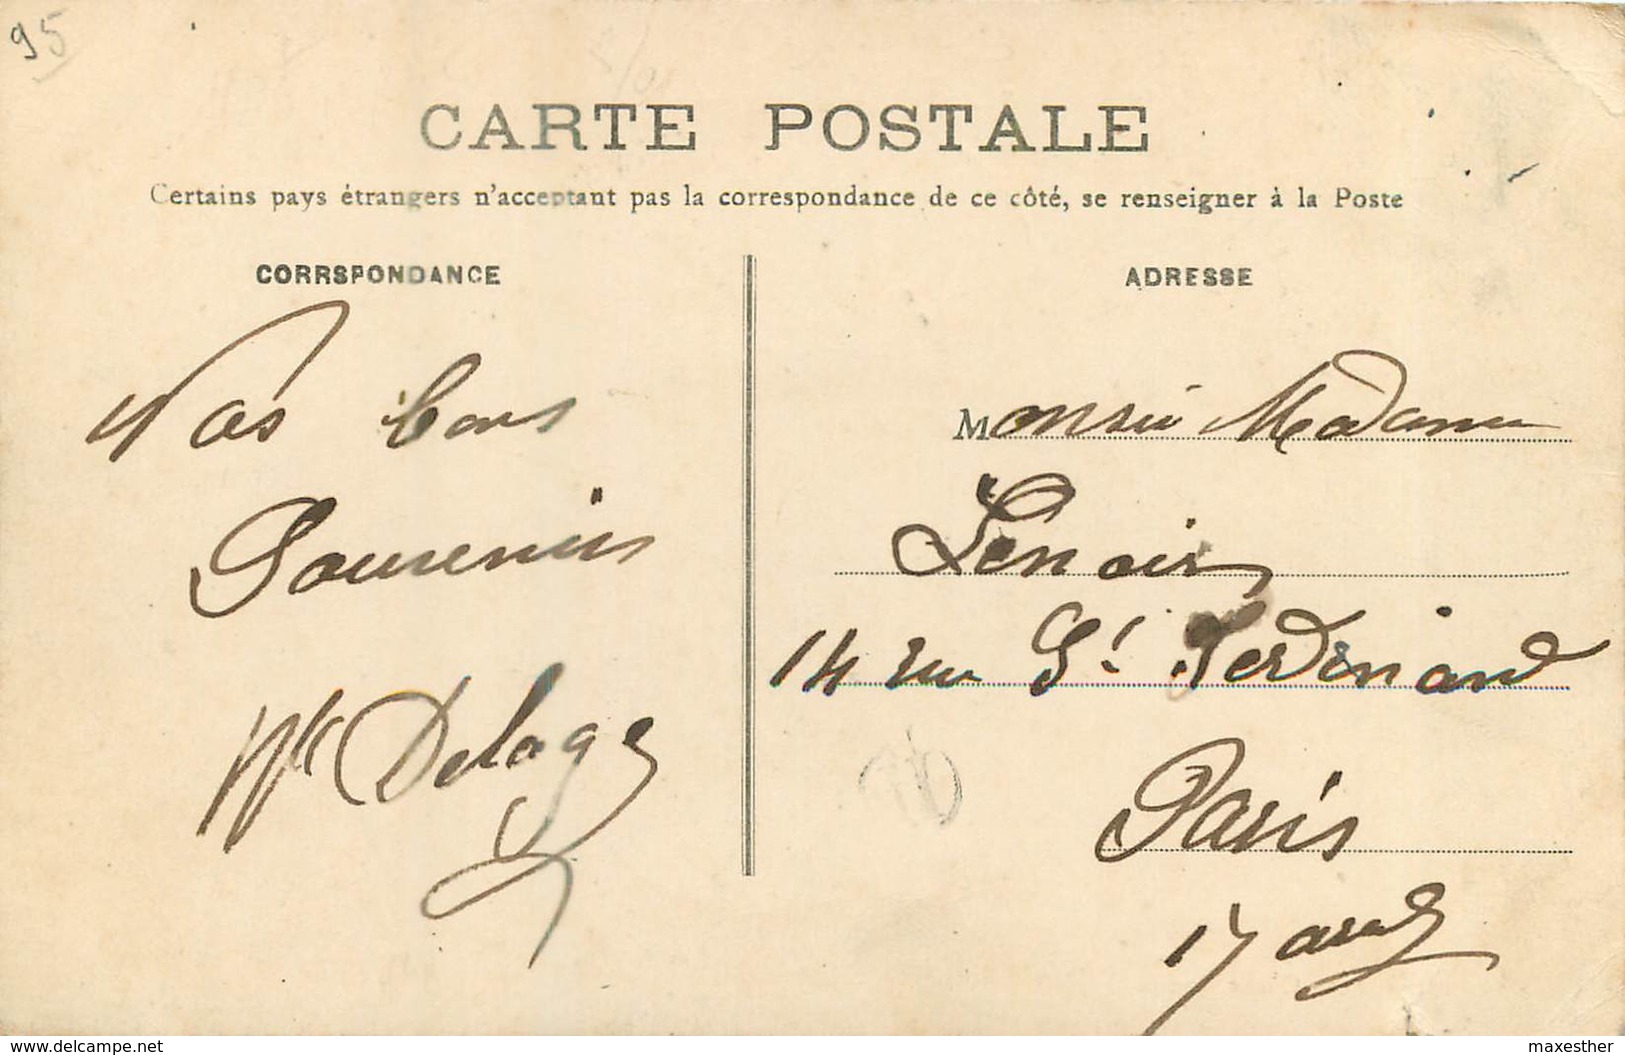 95
CARTE POSTALE
Certains pays étrangers n'acceptant pas la correspondance de ce côté, se renseigner à la Poste
CORRSPONDANCE
Nos bons
Souvenirs
Delage
ADRESSE
Monsieu Madame
Lenoir
14 rue St Ferdinand
Paris
17 arrd
www.delcampe.net
maxesther